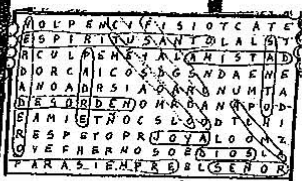 V O L P E N C I F I S I O T C A T E
E S P I R I T U S A N T O L A L S Y
R C U P E M E J A L A M I S T A D
D O R C A I C O S D G S N D A E N E
A N O A D R S I A O A R N U M T
D E S O R D E N O M R G A N A P O
E A M I E T N O C S L G O D T L R
R E S P E T O P R J O Y A L O O M
O V E F H E R N O S O E D I O S L
P A R A S I E M P R E B L S E Ñ O R